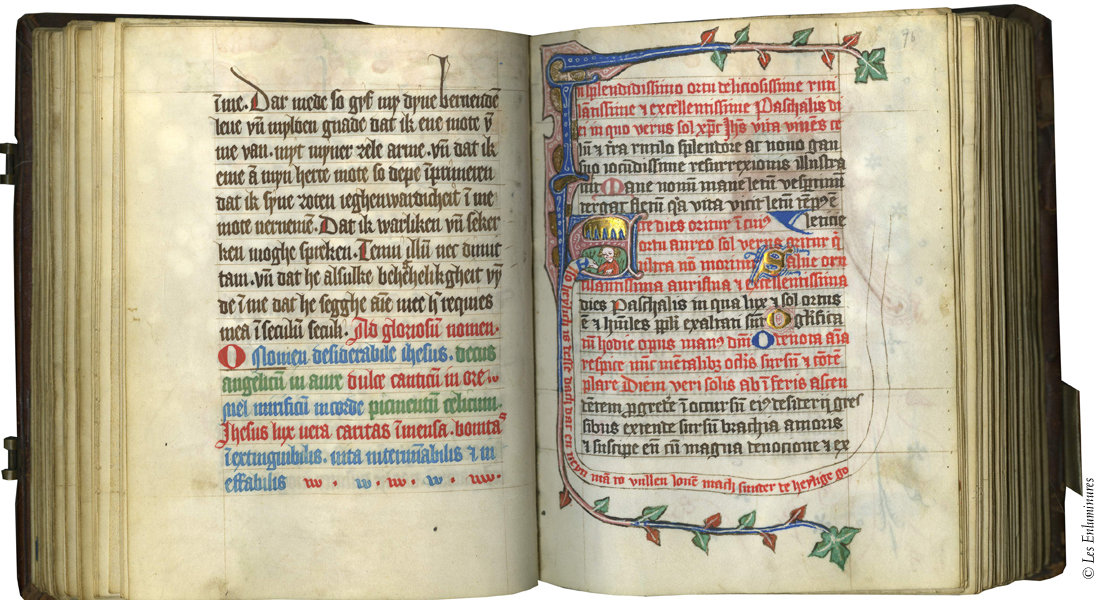 ime. Dar mede so gyf my dyne bernende
leue vn myloen gnade dat ik ene mote v̄
me van. myt myner zele arme. vn dat ik
ene ā myn herte mote so depe īprimeren
dat ik syne zoten ieghenwardicheit ī me
mote vernemē. Dat ik warliken vn seker
ken moghe spreken. Tenui illū nec dimit
tam. vn dat he alsulke behēhelikgheit vȳ
de ī me dat he segghe aīe mee h requies
mea ī seculū seculi. Ad gloriosū nomen.
O Nomen desiderabile ihesus. decus
angelicū in aure dulce canticū in ore
mel mirificū in corde pigmentū celicum.
Ihesus lux vera caritas īmensa. bonitas
īextinguibilis. vita interminabilis et in
effabilis
96
In splendidissimo ortu deliciosissime rut
lantissime et excellentissime Paschalis di
ei in quo verus sol xpc Ihs vita viuens ce
lū et t̄ra rutilo splendore ac nouo gau
dio iocūdissime resurrexionis illustra
tur Mane nouū mane letū vespertinū
tergat fletū q̄a vita vicit letū tēpus ē
Iste dies oritur ī cuius clemētie
ortu aureo sol verus oritur q̄
vltra nō moritur Salue ortu
tilantissima aurifina et excellentissima
dies Paschalis in qua lux et sol ortus
ē et hūiles pp̄li exaltati sūt O glifica
tū hodie opus manus dn̄i O deuota aīa
respice nūc mētalibus oclis sursū et cōtē
plare Diem veri solis ab īferis ascen
dētem pgrede ī occursū eius desiderij gres
sibus extende sursū brachia amoris
et suscipe eū cū magna deuocione et ex
So heylich is desse dach dat en neyn mā to vullen louē mach sunder de heylige go
© Les Enluminures